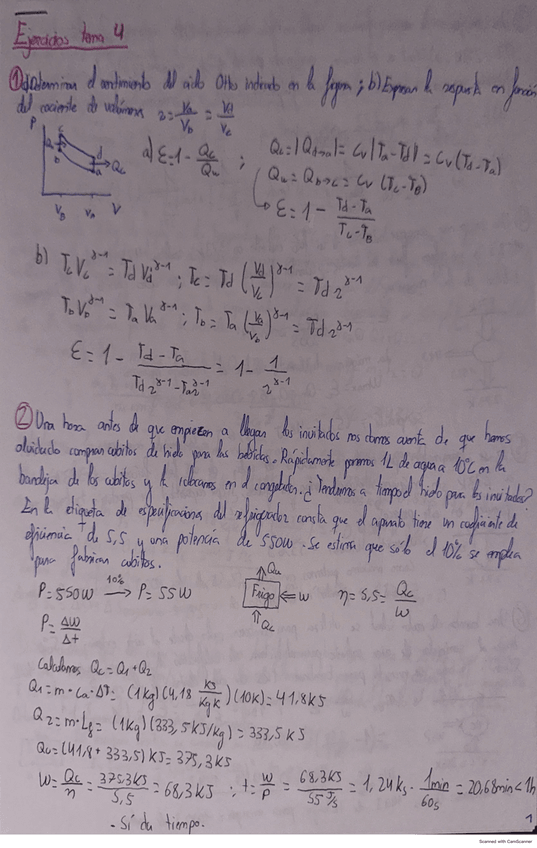 Ejercicios tema 4
① a) Determinar el rendimiento del ciclo Otto indicado en la figura; b) Expresar la respuesta en función
del cociente de volúmenes r = Va/Vb = Vd/Vc
P
c
Qh
b
d
Qc
a
VB
Va
V
a) ε = 1 - Qc/Qh ; Qc = |Qd→a| = Cv|Ta - Td| = Cv(Td - Ta)
Qh = Qb→c = Cv (Tc - TB)
↳ ε = 1 - (Td - Ta)/(Tc - TB)
b) Tc Vc^γ-1 = Td Vd^γ-1 ; Tc = Td (Vd/Vc)^γ-1 = Td r^γ-1
Tb Vb^γ-1 = Ta Va^γ-1 ; Tb = Ta (Va/Vb)^γ-1 = Td r^γ-1
ε = 1 - (Td - Ta)/(Td r^γ-1 - Ta r^γ-1) = 1 - 1/r^γ-1
② Una hora antes de que empiezen a llegar los invitados nos damos cuenta de que hemos
olvidado comprar cubitos de hielo para las bebidas. Rápidamente ponemos 1L de agua a 10ºC en la
bandeja de los cubitos y la colocamos en el congelador. ¿Tendremos a tiempo el hielo para los invitados?
En la etiqueta de especificaciones del refrigerador consta que el aparato tiene un coeficiente de
eficiencia de 5,5 y una potencia de 550W. Se estima que sólo el 10% se emplea
para fabricar cubitos.
P = 550W —10%→ P = 55W
Qh
Frigo
⇐ W
Qc
η = 5,5 = Qc/W
P = ΔW/Δt
Calculamos Qc = Q1 + Q2
Q1 = m · Ca · ΔT = (1Kg)(4,18 KJ/KgK)(10K) = 41,8KJ
Q2 = m · Lf = (1Kg)(333,5KJ/Kg) = 333,5KJ
Qc = (41,8 + 333,5)KJ = 375,3KJ
W = Qc/η = 375,3KJ/5,5 = 68,3KJ ; t = W/P = 68,3KJ/55 J/s = 1,24Ks · 1min/60s = 20,68min < 1h
- Sí da tiempo.
1
Scanned with CamScanner